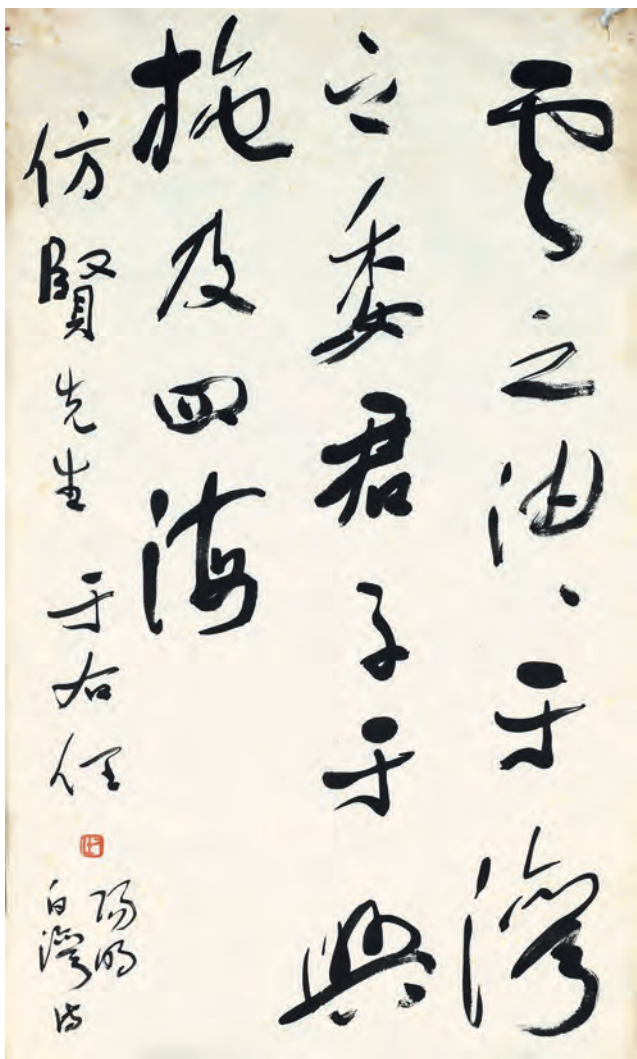 雲之油、于灣
之委君子于興
施及四海
仿賢先生 于右任
陽明
白灣詩